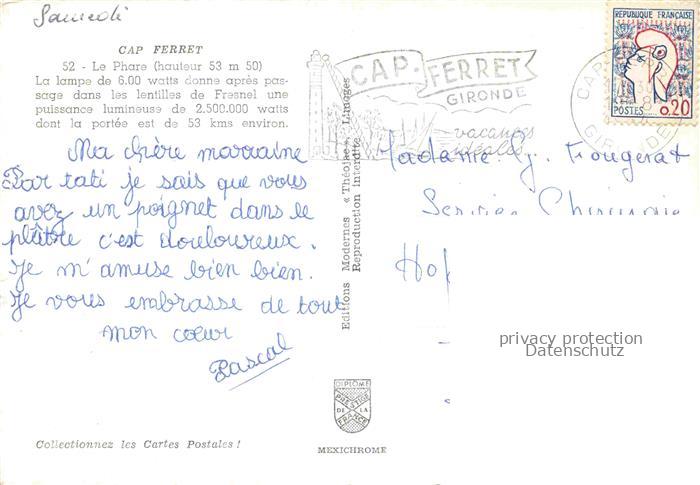 Samedi
CAP FERRET
52 - Le Phare (hauteur 53 m 50)
La lampe de 6.00 watts donne après pas-
sage dans les lentilles de Fresnel une
puissance lumineuse de 2.500.000 watts
dont la portée est de 53 kms environ.
Ma chère marraine
Par tati je sais que vous
avez un poignet dans le
plâtre c'est douloureux.
Je m'amuse bien bien.
Je vous embrasse de tout
mon cœur
Pascal
Collectionnez les Cartes Postales !
Editions Modernes « Théojac », Limoges
Reproduction interdite
DIPLOME
PRESTIGE
DE LA
FRANCE
MEXICHROME
CAP-FERRET
GIRONDE
vacances
idéales
REPUBLIQUE FRANÇAISE
POSTES
0,20
CAP
GIRONDE
Madame Fougerat
Service Chirurgie
privacy protection
Datenschutz